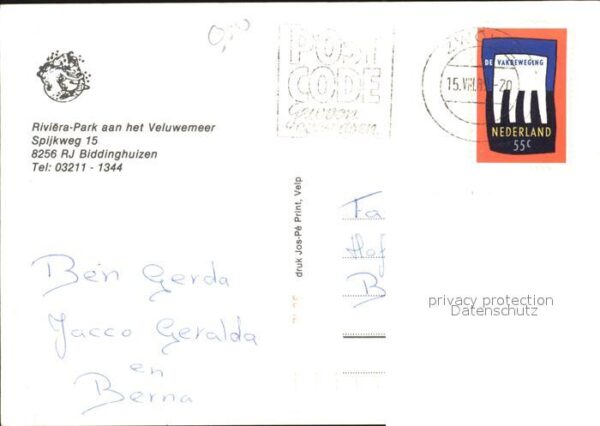 0,50
POST
CODE
Gewoon
DE VAKBEWEGING
NEDERLAND
55c
Riviëra-Park aan het Veluwemeer
Spijkweg 15
8256 RJ Biddinghuizen
Tel: 03211 - 1344
druk Jos-Pé Print, Velp
Fa
Hof
B
Ben Gerda
Jacco Geralda
en
Berna
privacy protection
Datenschutz